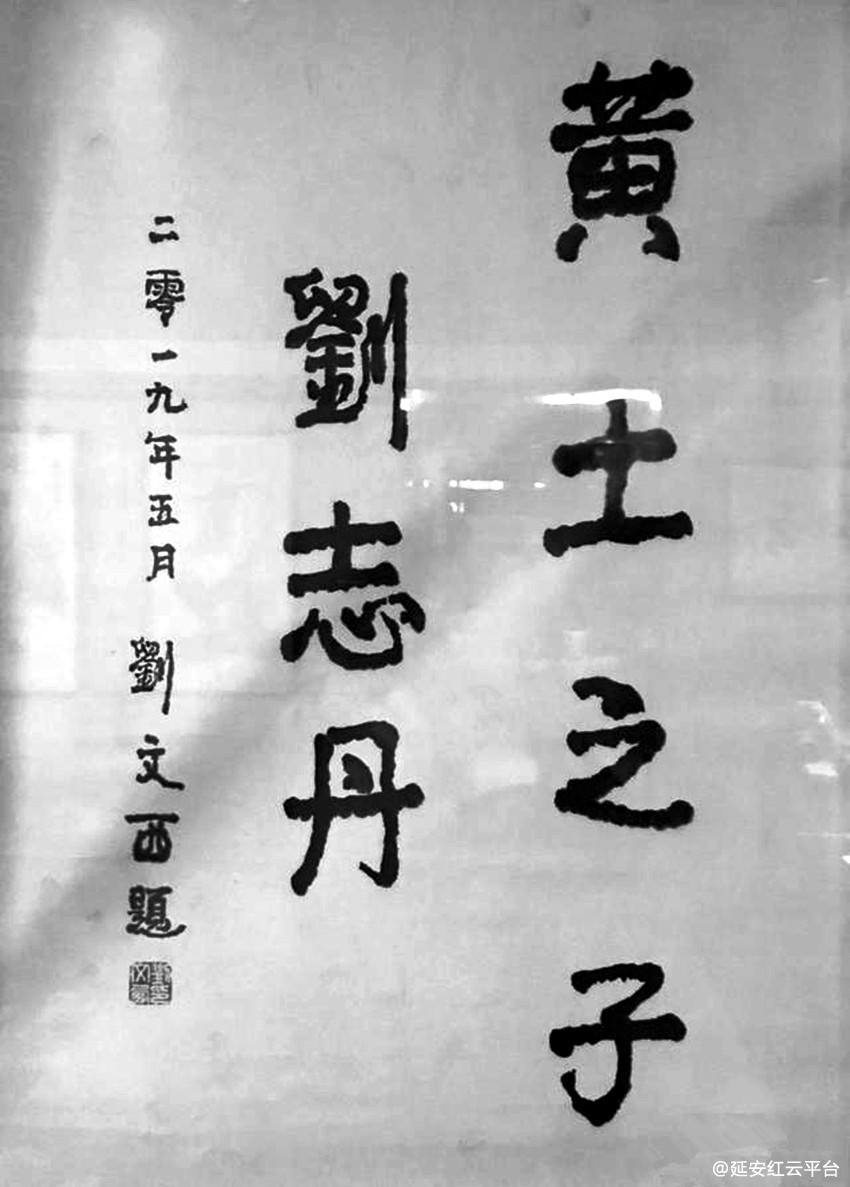 黃土之子
劉志丹
二零一九年五月 劉文西題
@延安红云平台